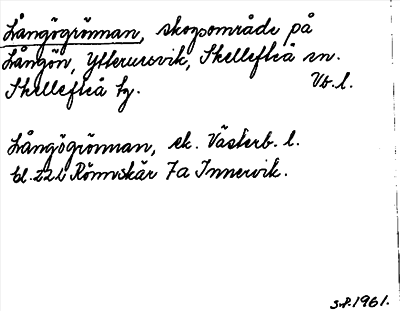 Långögrönnan, skogsområde på
Långön, Ytterursvik, Skellefteå sn.
Skellefteå ty. Vb.l.
Långögrönnan, ek. Västerb. l.
bl. 22L Rönnskär 7a Innervik.
1961.